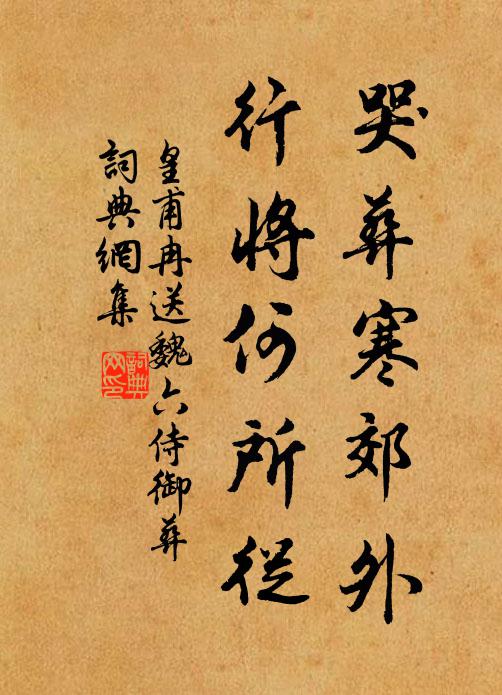 哭葬寒郊外
行將何所從
皇甫冉送魏六侍御葬
詞典網集
詞典網印